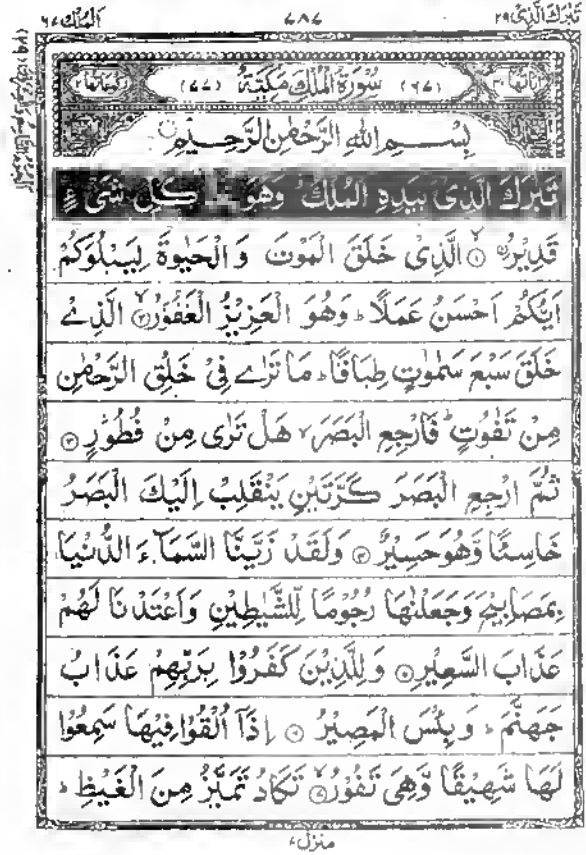 تَبٰرَكَ الَّذِیْ ۲۹
۷۸۷
اَلْمُلْك ۶۷
اٰیَاتُهَا ۳۰
(۶۷) سُوْرَةُ الْمُلْكِ مَكِّیَّةٌ (۷۷)
رُكُوْعَاتُهَا ۲
بِسْمِ اللهِ الرَّحْمٰنِ الرَّحِیْمِ
تَبٰرَكَ الَّذِیْ بِیَدِهِ الْمُلْكُ وَهُوَ كُلِّ شَیْءٍ
قَدِیْرٌ ۙ۱ الَّذِیْ خَلَقَ الْمَوْتَ وَالْحَیٰوةَ لِیَبْلُوَكُمْ
اَیُّكُمْ اَحْسَنُ عَمَلًا ؕ وَهُوَ الْعَزِیْزُ الْغَفُوْرُ ۙ۲ الَّذِیْ
خَلَقَ سَبْعَ سَمٰوٰتٍ طِبَاقًا ؕ مَا تَرٰی فِیْ خَلْقِ الرَّحْمٰنِ
مِنْ تَفٰوُتٍ ؕ فَارْجِعِ الْبَصَرَ ۙ هَلْ تَرٰی مِنْ فُطُوْرٍ ۳
ثُمَّ ارْجِعِ الْبَصَرَ كَرَّتَیْنِ یَنْقَلِبْ اِلَیْكَ الْبَصَرُ
خَاسِئًا وَّهُوَ حَسِیْرٌ ۴ وَلَقَدْ زَیَّنَّا السَّمَآءَ الدُّنْیَا
بِمَصَابِیْحَ وَجَعَلْنٰهَا رُجُوْمًا لِّلشَّیٰطِیْنِ وَاَعْتَدْنَا لَهُمْ
عَذَابَ السَّعِیْرِ ۵ وَلِلَّذِیْنَ كَفَرُوْا بِرَبِّهِمْ عَذَابُ
جَهَنَّمَ ؕ وَبِئْسَ الْمَصِیْرُ ۶ اِذَآ اُلْقُوْا فِیْهَا سَمِعُوْا
لَهَا شَهِیْقًا وَّهِیَ تَفُوْرُ ۙ۷ تَكَادُ تَمَیَّزُ مِنَ الْغَیْظِ ؕ
منزل ۷